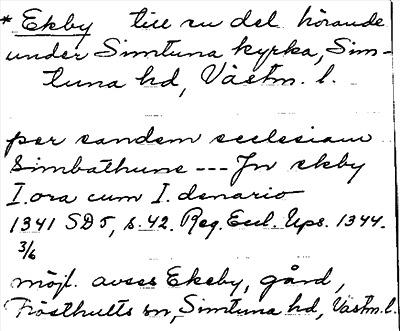 * Ekby till en del hörande
under Simtuna kyrka, Sim-
tuna hd, Västm. l.
per eandem ecclesiam
Simbathune --- Jn ekby
I. ora cum I. denario
1341 SD 5, s. 42. Reg. Eccl. Ups. 1344.
3/6
möjl. avses Ekeby, gård,
Frösthults sn, Simtuna hd, Västm. l.